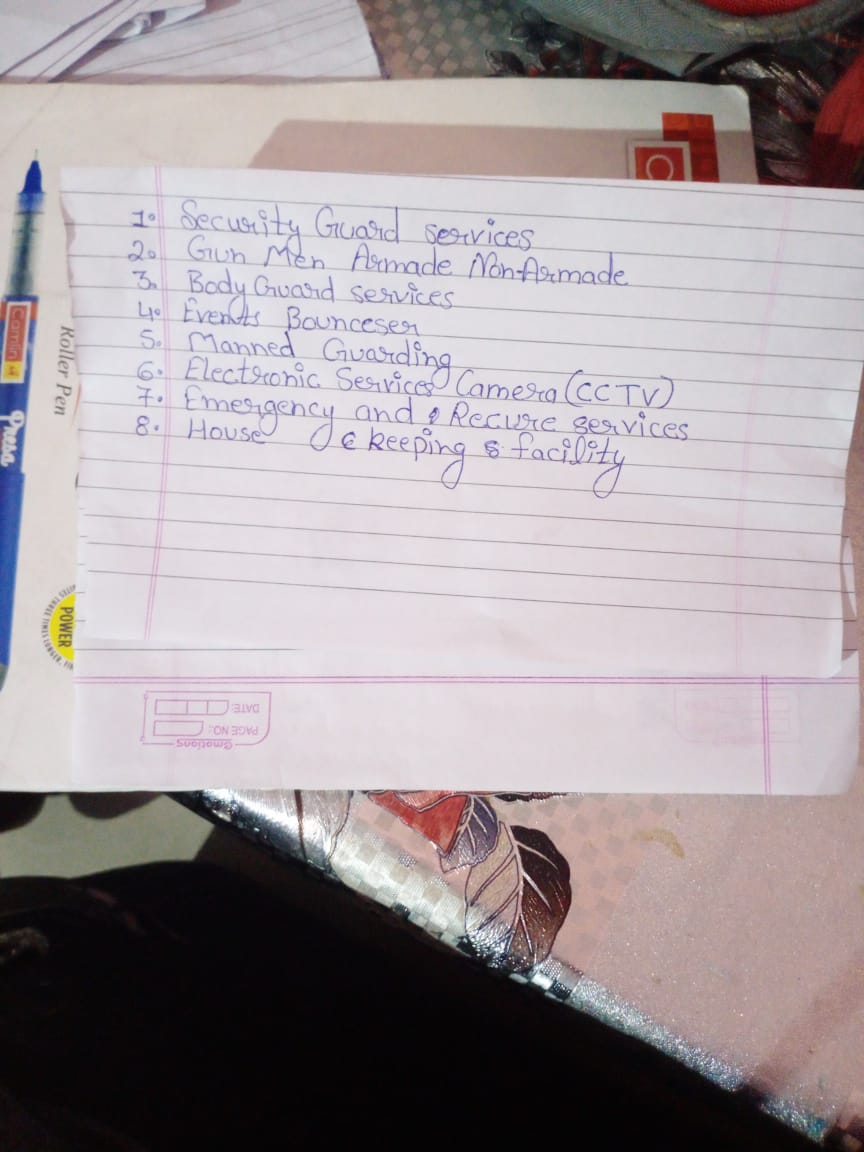 1. Security Guard services
2. Gun Men Armade Non-Armade
3. Body Guard services
4. Events Bounceser
5. Manned Guarding
6. Electronic Services Camera (CCTV)
7. Emergency and Recure services
8. House keeping & facility
Camlin
Roller Pen
POWER
DATE:
PAGE NO.: